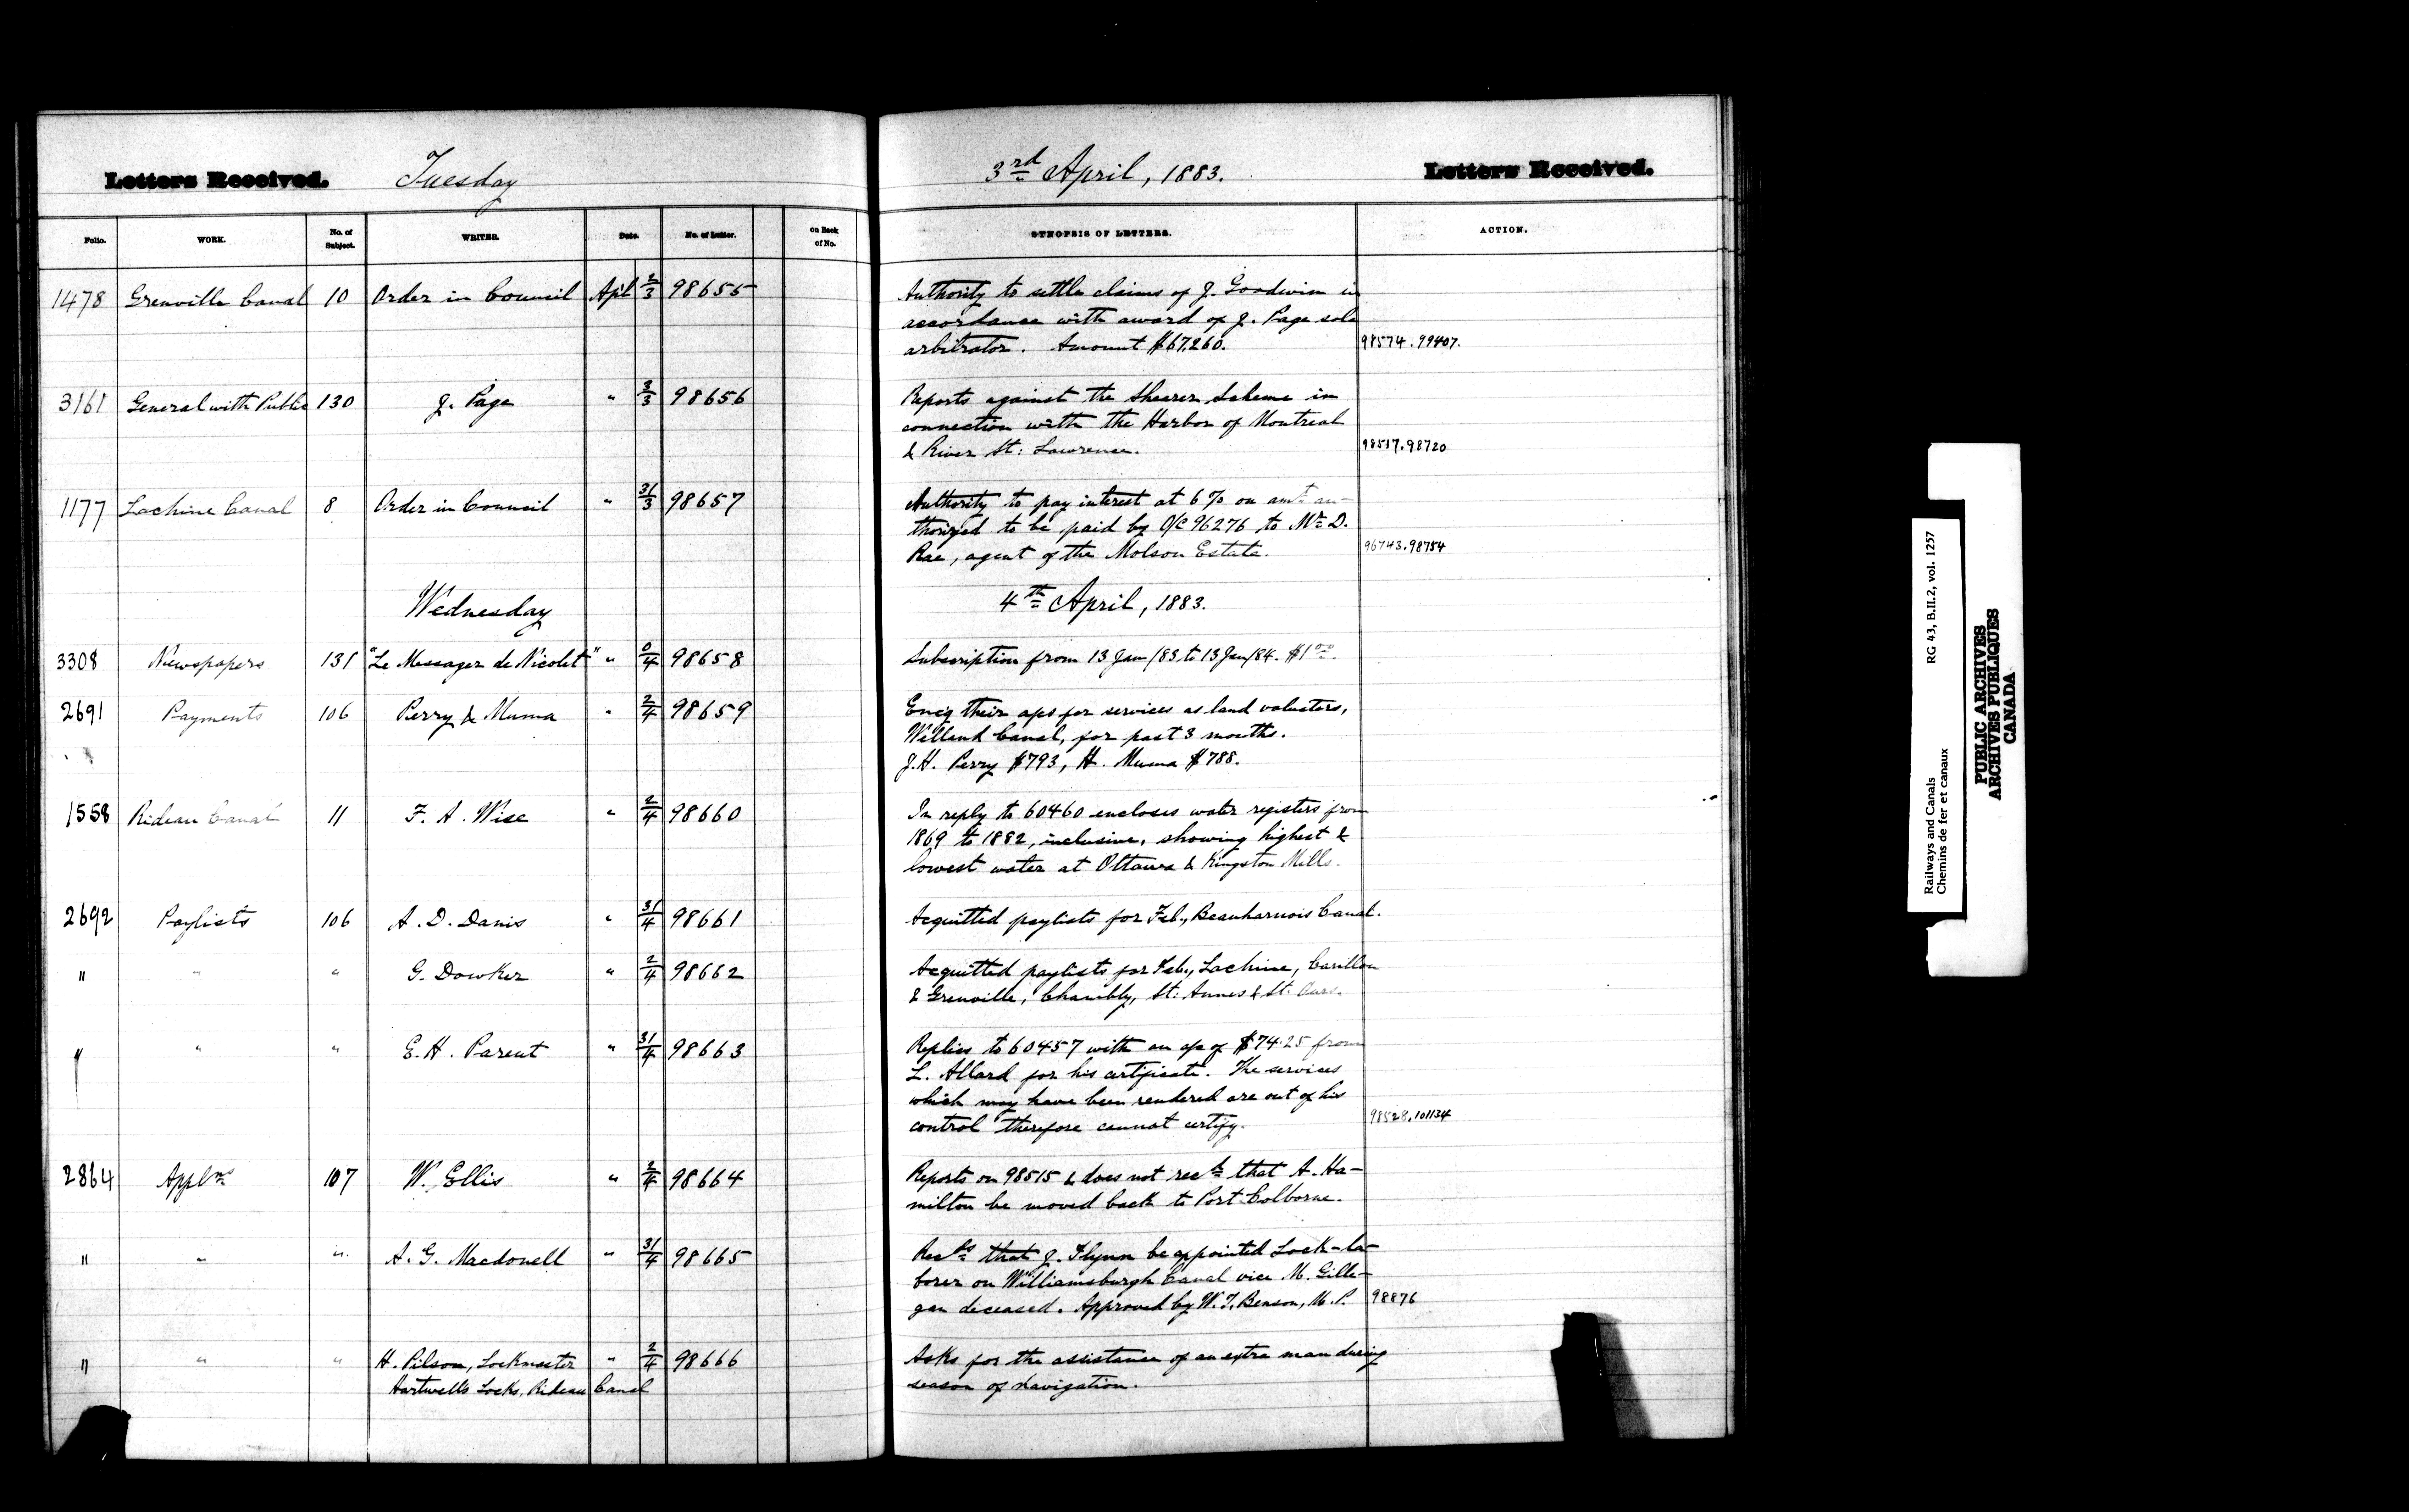 Letters Received. Tuesday 3rd April, 1883. Letters Received.
Folio. WORK. No. of Subject. WRITER. Date. No. of Letter. on Back of No. SYNOPSIS OF LETTERS. ACTION.
1478 Grenville Canal 10 Order in Council Apl 2/3 98655 Authority to settle claims of J. Goodwin in
accordance with award of J. Page sole
arbitrator. Amount $67,260. 98574.99407.
3161 General with Public 130 J. Page " 3/3 98656 Reports against the Shearer Scheme in
connection with the Harbor of Montreal
& River St: Lawrence. 98517.98720
1177 Lachine Canal 8 Order in Council " 31/3 98657 Authority to pay interest at 6% on amt au-
thorized to be paid by O/C 96276, to Mr D.
Rae, agent of the Molson Estate. 96743.98754
Wednesday 4th April, 1883.
3308 Newspapers 131 "Le Messager de Nicolet" " 0/4 98658 Subscription from 13 Jan/83 to 13 Jan/84. $1.00.
2691 Payments 106 Perry & Muma " 2/4 98659 Encg their a/cs for services as land valuators,
Welland Canal, for past 3 months.
J.H. Perry $793, H. Muma $788.
1558 Rideau Canal 11 F. A. Wise " 2/4 98660 In reply to 60460 encloses water registers from
1869 to 1882, inclusive, showing highest &
lowest water at Ottawa & Kingston Mills.
2692 Paylists 106 A. D. Danis " 31/4 98661 Acquitted paylists for Feb., Beauharnois Canal.
" " " G. Dowker " 2/4 98662 Acquitted paylists for Feb., Lachine, Carillon
& Grenville, Chambly, St: Annes & St: Ours.
" " " E. H. Parent " 31/4 98663 Replies to 60457 with an a/c of $74.25 from
L. Allard for his certificate. The services
which may have been rendered are out of his
control therefore cannot certify. 98528.101134
2864 Applns 107 W. Ellis " 2/4 98664 Reports on 98515 & does not recd that A. Ha-
milton be moved back to Port Colborne.
" " " A. G. Macdonell " 31/4 98665 Recds that J. Flynn be appointed Lock-la-
borer on Williamsburgh Canal vice M. Gille-
gan deceased. Approved by W. T. Benson, M.P. 98876
" " " H. Pilson, Lockmaster " 2/4 98666 Asks for the assistance of an extra man during
Hartwells Locks, Rideau Canal season of navigation.
Railways and Canals RG 43, B.II.2, vol. 1257
Chemins de fer et canaux
PUBLIC ARCHIVES
ARCHIVES PUBLIQUES
CANADA